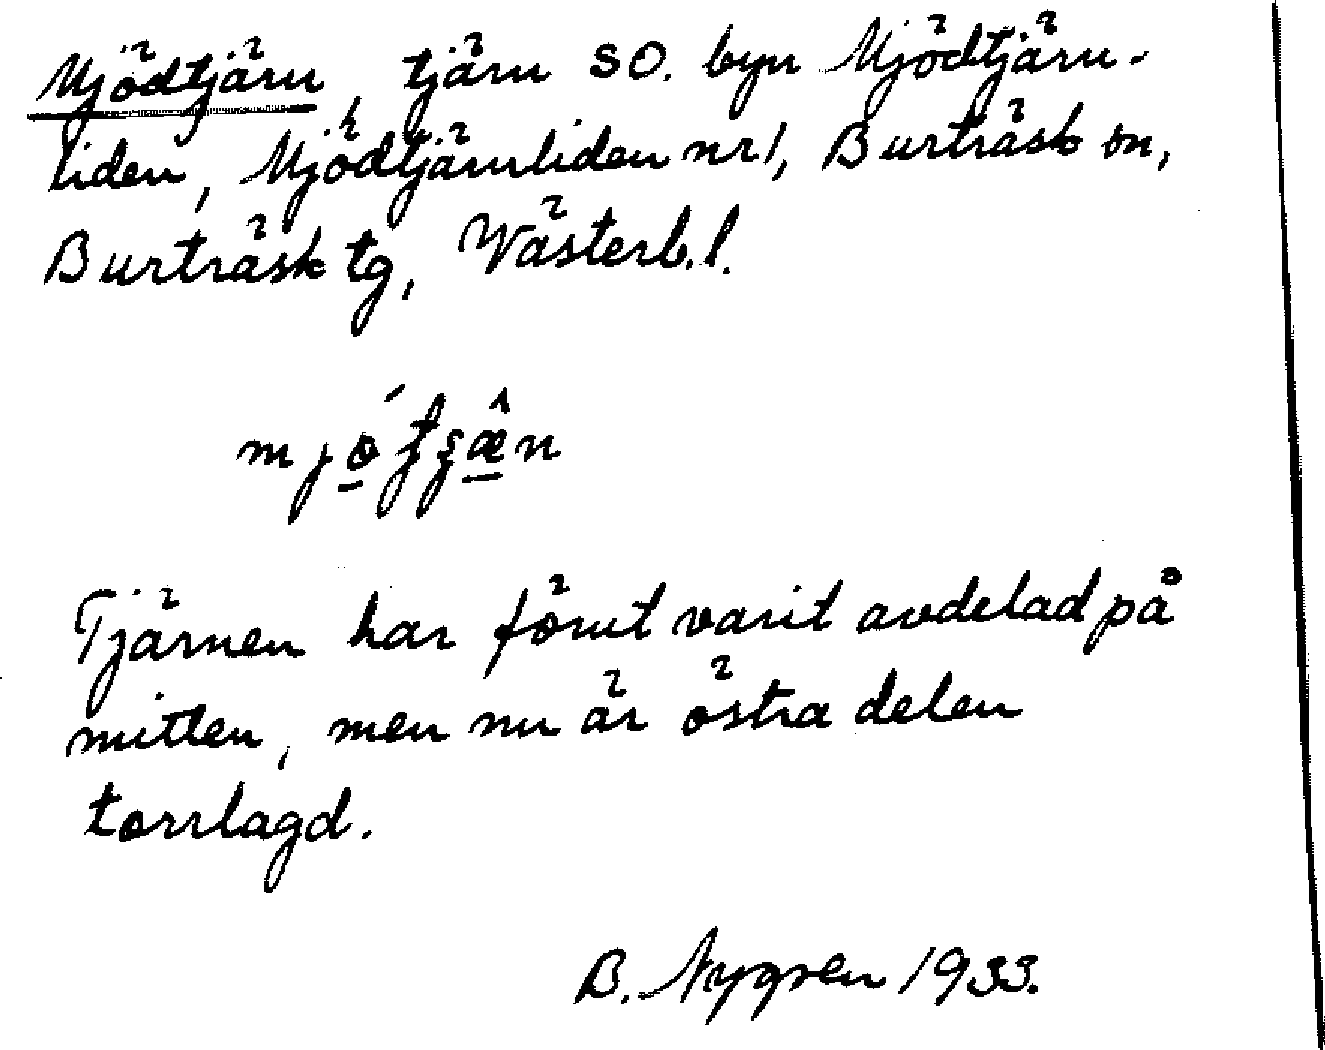 Mjödtjärn, tjärn SO. byn Mjödtjärn-
liden, Mjödtjärnliden nr 1, Burträsk sn,
Burträsk tg, Västerb. l.
Tjärnen har förut varit avdelad på
mitten, men nu är östra delen
torrlagd.
B. Nygren 1933.